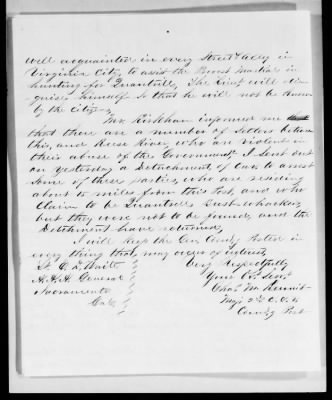 well acquainted in every Street & alley in
Virginia City, to assist the Provost Marshal in
hunting for Quantrell, The Lieut will dis-
guise himself so that he will not be known
by the Citizens.
Mr Kirkham informed me
that there are a number of Settlers between
this, and Reese River, who are violent in
their abuse of the Government, I sent out
on yesterday a Detachment of Cav to arrest
some of these parties, who are residing
about 10 miles from this Post, and who
Claim to be Quantrells Bush-whackers,
but they were not to be found, and the
Detchment have returned,
I will keep the Gen Comdg Posted in
every thing that may occur of interest,
Very Respectfully
Your Ob Servt
Chas McDermit
Maj 2nd C. V. C.
Comdg Post
A. A. A. General
Sacramento
Cal